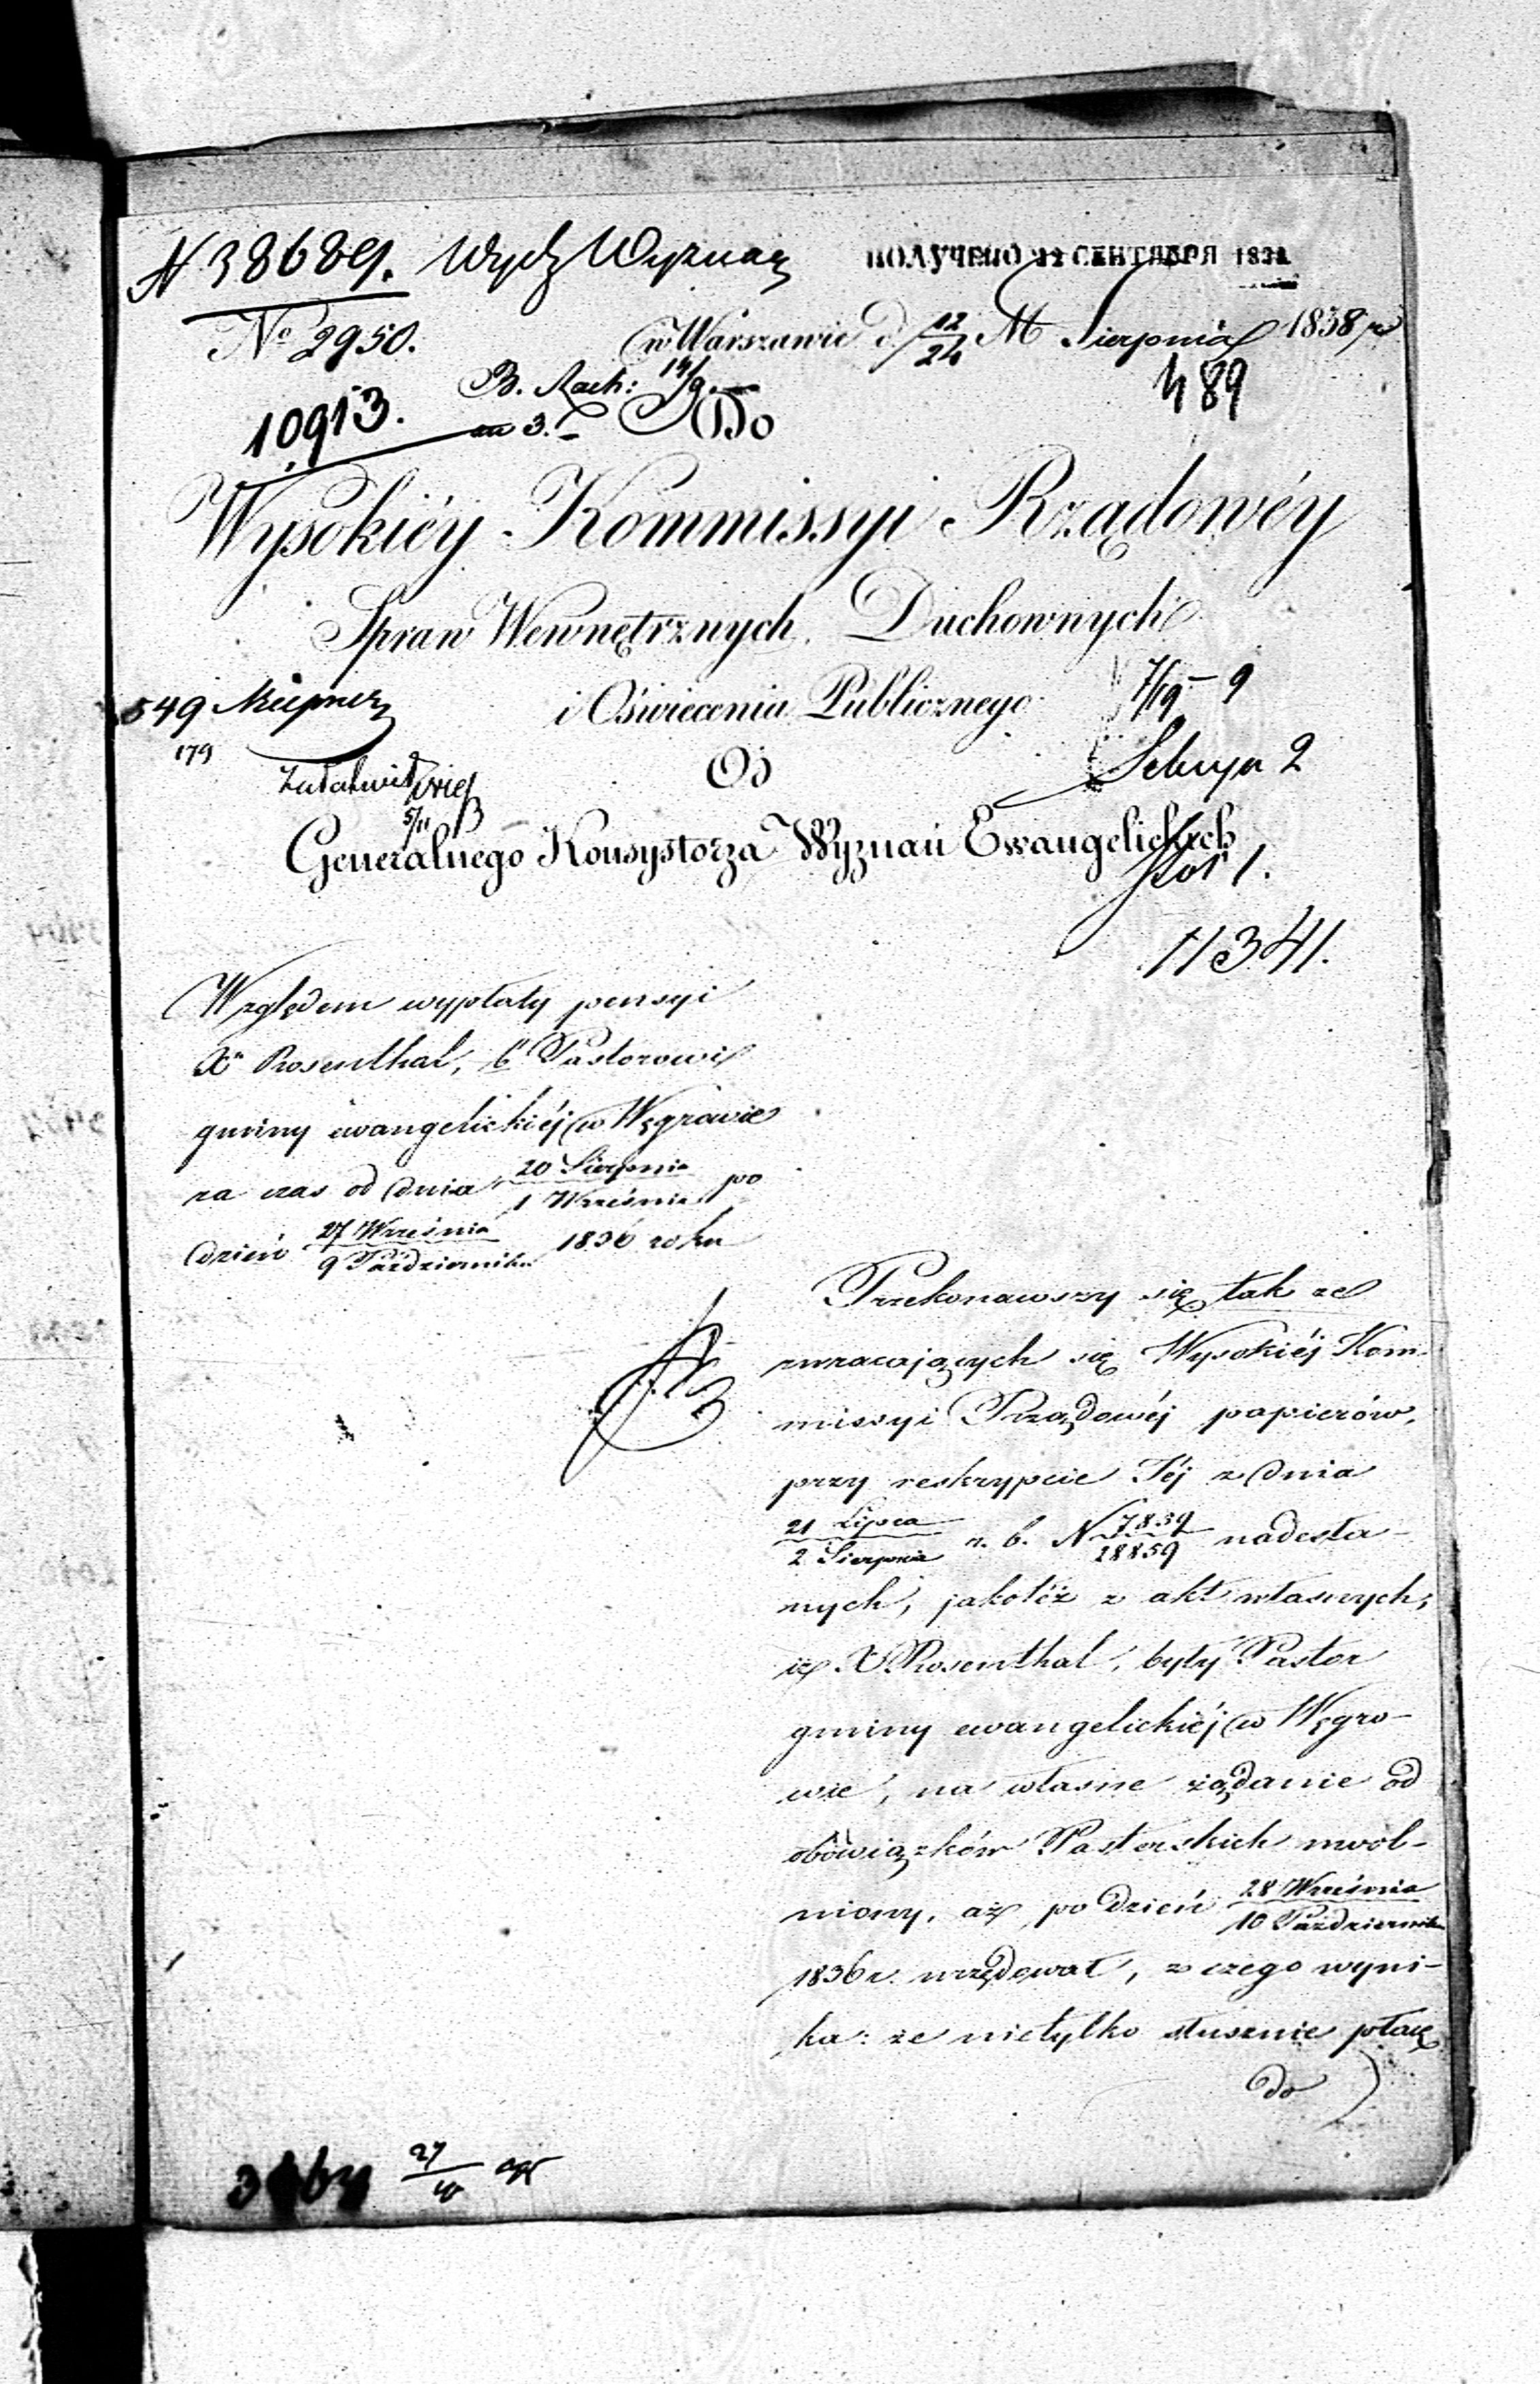 N 38689. Wydz Wyznań
ПОЛУЧЕНО СЕНТЯБРЯ
No 2950.
w Warszawie d. 12/24 M Sierpnia 1838 r
B. Rach: 14/9
489
10913.
3.
Do
Wysokiéy Kommissyi Rządowéy
Spraw Wewnętrznych Duchownych
i Oświecenia Publicznego
549
179
7/19 - 9
Od
Sekcya 2
5/11
Generalnego Konsystorza Wyznań Ewangelickich
11341.
Względem wypłaty pensyi
Xu Rosenthal, b. Pastorowi
gminy ewangelickiéj w Węgrowie
za czas od dnia 20 Sierpnia / 1 Września po
dzień 27 Września / 9 Października 1836 roku
Przekonawszy się tak ze
zwracających się Wysokiéj Kom-
missyi Rządowéj papierów,
przy reskrypcie Téj z dnia
21 Lipca / 2 Sierpnia r. b. N 7839/18859 nadesła-
nych, jakotéż z akt własnych,
iż X. Rosenthal, były Pastor
gminy ewangelickiéj w Węgro-
wie, na własne żądanie od
obowiązków Pasterskich uwol-
niony, aż po dzień 28 Września / 10 Października
1836 r. urzędował, z czego wyni-
ka: że nietylko słusznie płacę
do
27/10